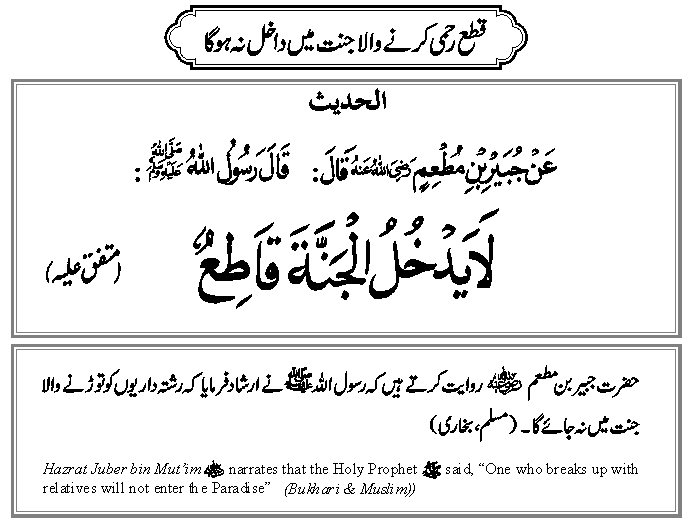 قطع رحمی کرنے والا جنت میں داخل نہ ہوگا
الحدیث
عَنْ جُبَيْرِ بْنِ مُطْعِمٍ رَضِيَ اللهُ عَنْهُ قَالَ: قَالَ رَسُوْلُ اللهِ ﷺ :
لَا يَدْخُلُ الْجَنَّةَ قَاطِعٌ
(متفق علیہ)
حضرت جبیر بن مطعم رضی اللہ عنہ روایت کرتے ہیں کہ رسول اللہ ﷺ نے ارشاد فرمایا کہ رشتہ داریوں کو توڑنے والا
جنت میں نہ جائے گا۔ (مسلم، بخاری)
Hazrat Juber bin Mut’im رضی اللہ عنہ narrates that the Holy Prophet ﷺ said, “One who breaks up with
relatives will not enter the Paradise” (Bukhari & Muslim))